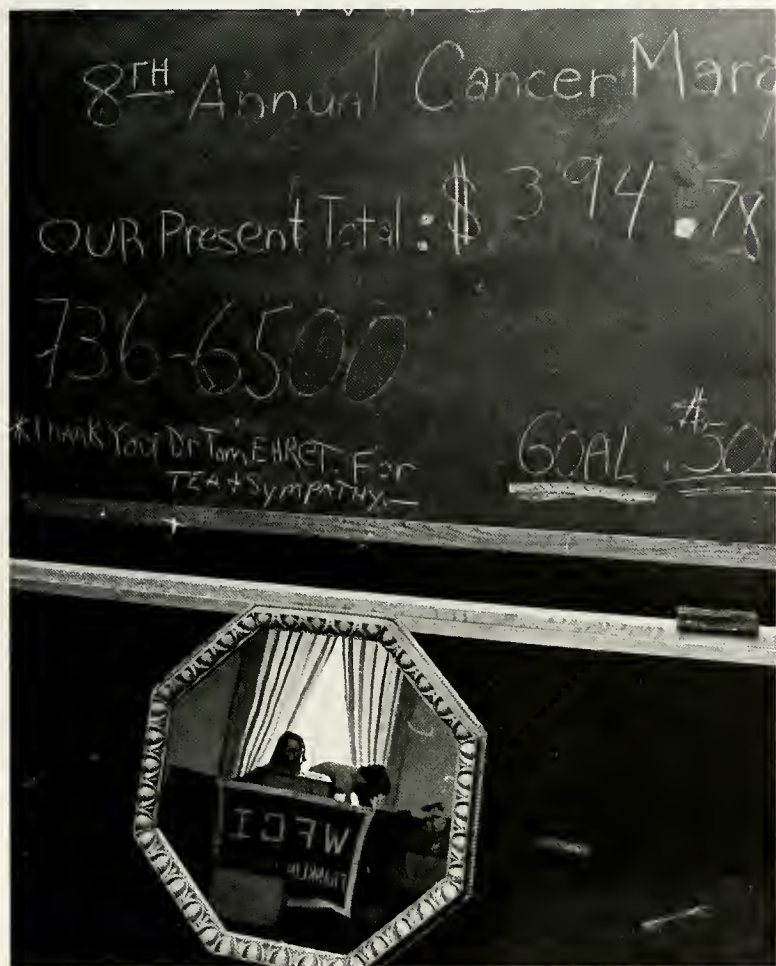 8TH Annual Cancer Mara
OUR Present Total : $ 394.78
736-6500
*THANK YOU Dr Tom EHRET. For
TEA + Sympathy.—
GOAL :
WFCI
FRANKLIN